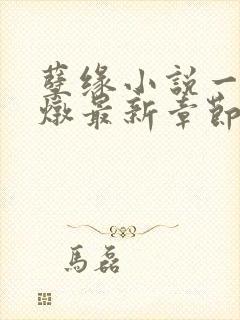 孽缘小說一
燉最新章節
馬磊